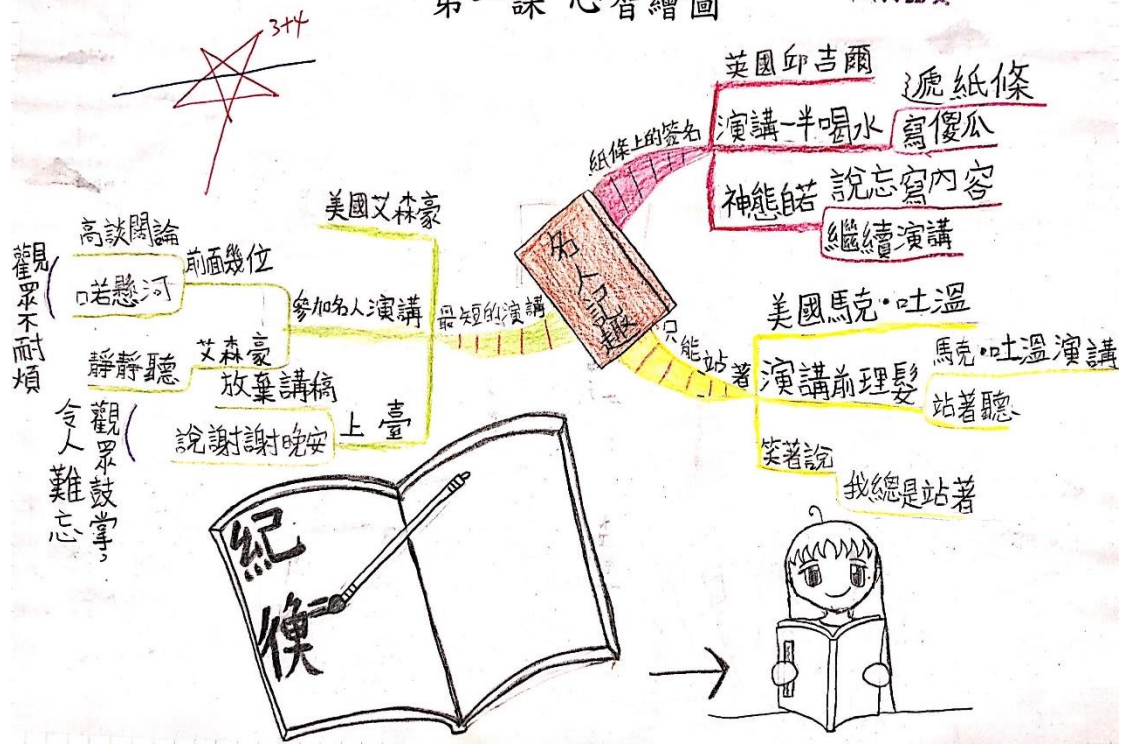 課 心智繪圖
3+4
名人記趣
紙條上的簽名
英國邱吉爾
演講一半喝水
遞紙條
寫傻瓜
神態自若
說忘寫內容
繼續演講
只能站著
美國馬克·吐溫
演講前理髮
馬克·吐溫演講
站著聽
笑著說
我總是站著
最短的演講
美國艾森豪
參加名人演講
前面幾位
高談闊論
口若懸河
觀眾不耐煩
艾森豪
靜靜聽
上臺
放棄講稿
說謝謝晚安
觀眾鼓掌,
令人難忘
紀